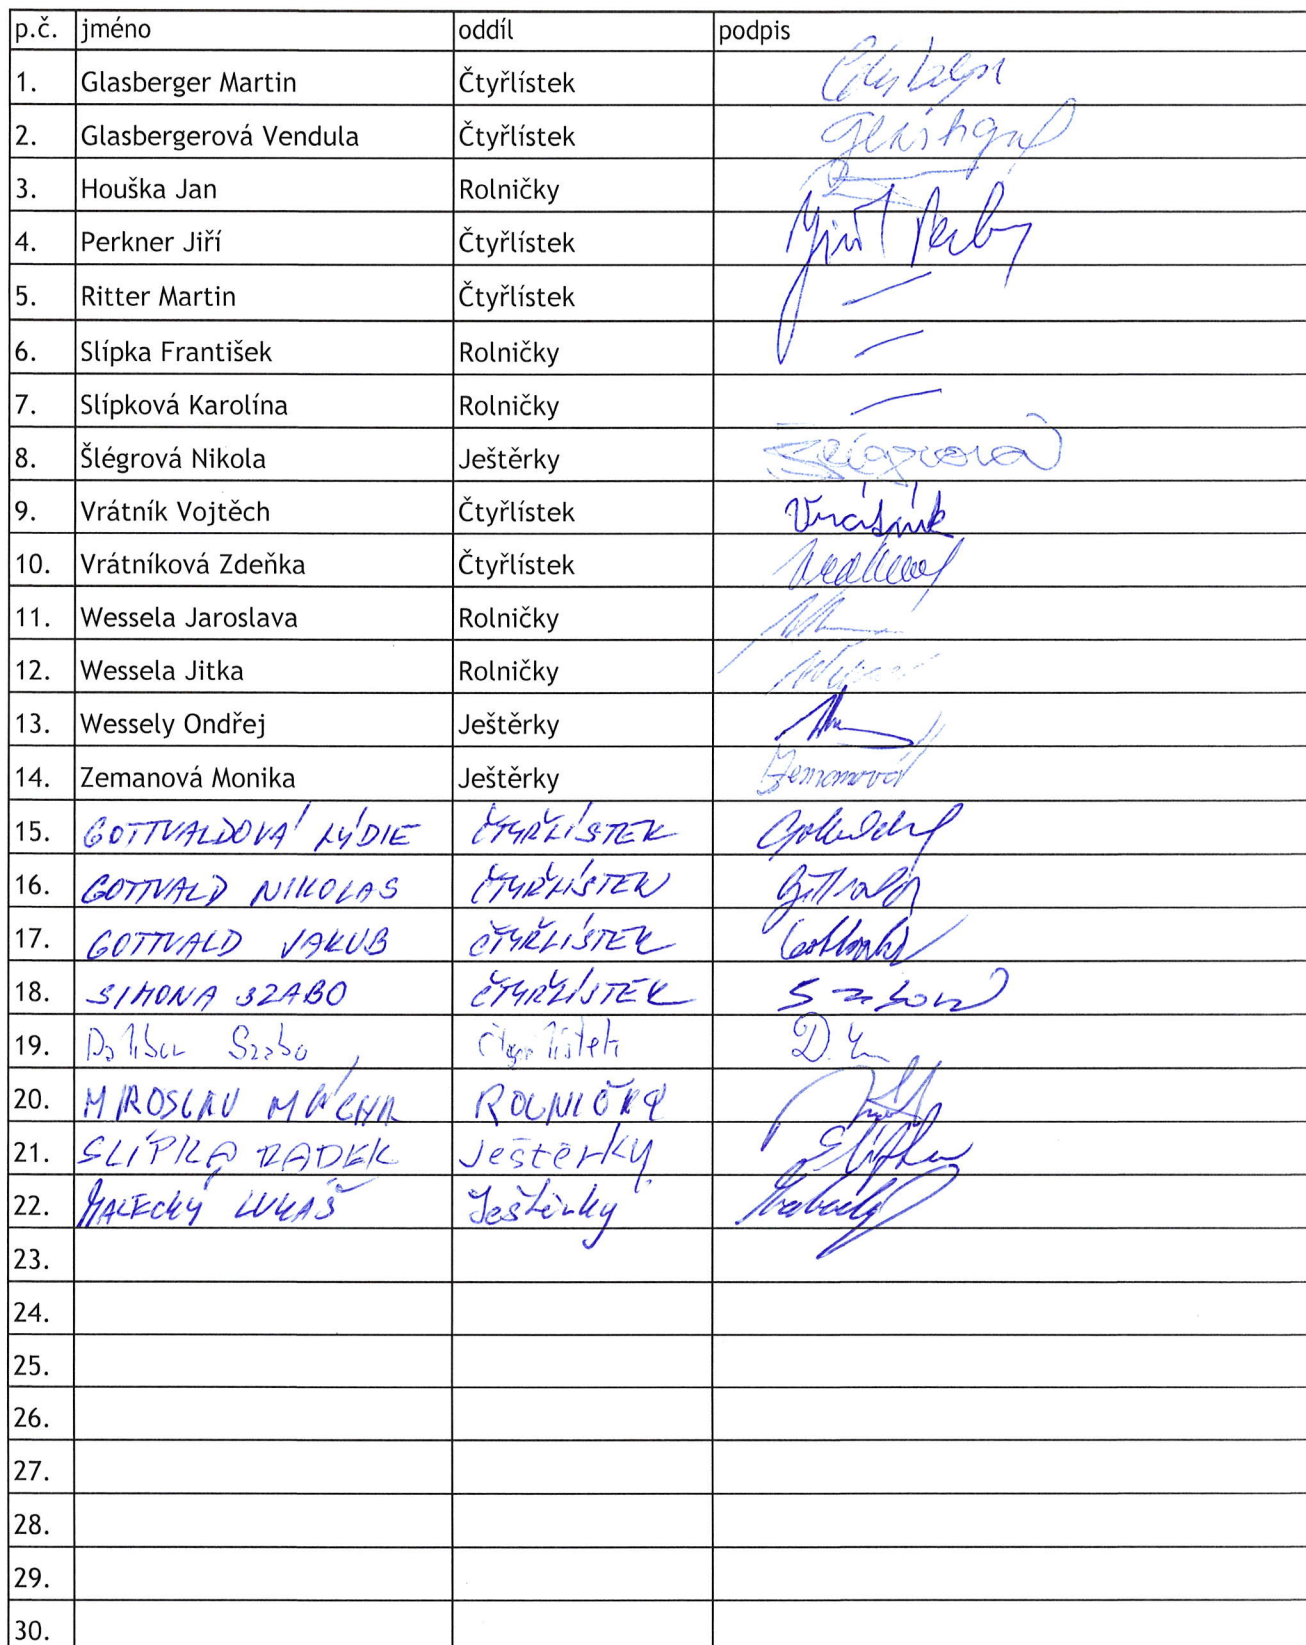 p.č. jméno oddíl podpis
1. Glasberger Martin Čtyřlístek
2. Glasbergerová Vendula Čtyřlístek
3. Houška Jan Rolničky
4. Perkner Jiří Čtyřlístek
5. Ritter Martin Čtyřlístek —
6. Slípka František Rolničky —
7. Slípková Karolína Rolničky —
8. Šlégrová Nikola Ještěrky
9. Vrátník Vojtěch Čtyřlístek Vrátník
10. Vrátníková Zdeňka Čtyřlístek
11. Wessela Jaroslava Rolničky
12. Wessela Jitka Rolničky
13. Wessely Ondřej Ještěrky
14. Zemanová Monika Ještěrky Zemanová
15. GOTTVALDOVÁ LÝDIE ČTYŘLÍSTEK
16. GOTTVALD NIKOLAS ČTYŘLÍSTEK
17. GOTTVALD JAKUB ČTYŘLÍSTEK
18. SIMONA SZABO ČTYŘLÍSTEK
19. Dalibor Szabo Čtyřlístek
20. MIROSLAV MÁCHA ROLNIČKY
21. SLÍPKA RADEK Ještěrky
22. MALECKÝ LUKÁŠ Ještěrky
23.
24.
25.
26.
27.
28.
29.
30.